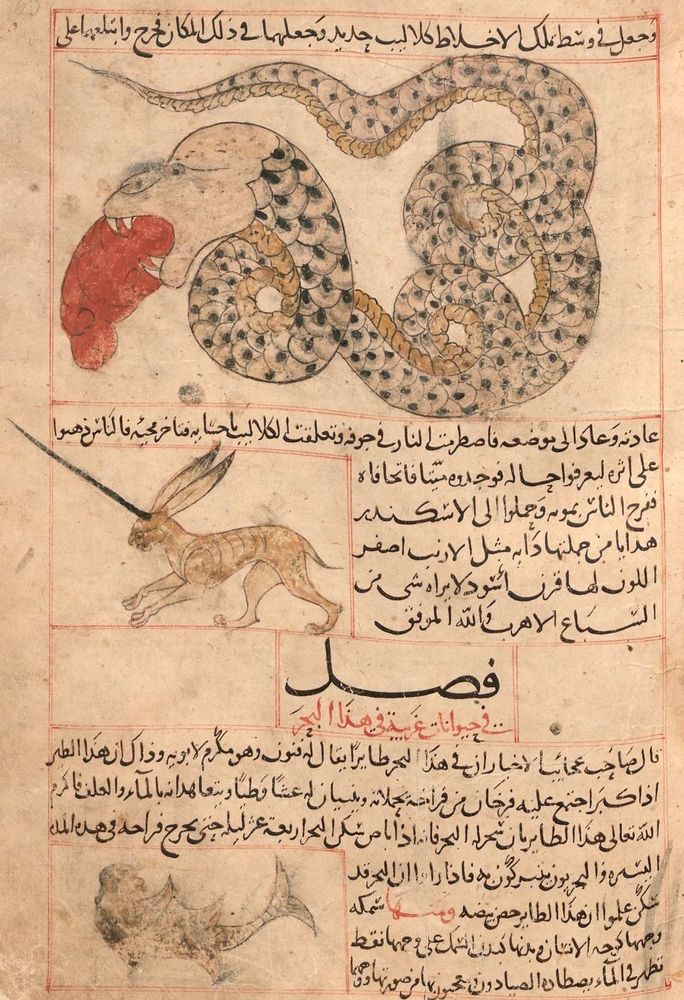 وجعل في وسط تلك الاخلاط كلاليب حديد وجعلهما في ذلك المكان فخرج وابتلعهما على
عادته وعاد الى موضعه فاضطرمت النار في جوفه وتعلقت الكلاليب باحشايه فتاخر مجيه فالناس ذهبوا
على اثره ليعرفوا حاله فوجدوه ميتا فاتحا فاه
ففرح الناس بموته وحملوا الى الاسكندر
هدايا من جملتها دابه مثل الارنب اصفر
اللون لها قرن اسود لا يراه شى من
السباع الا هرب والله الموفق
فصل
في حيوانات غريبة في هذا البحر
قال صاحب عجائب الاخبار ان في هذا البحر طايرا يقال له فنون وهو مكرم لابويه وذاك ان هذا الطير
اذا كبر اجتمع عليه فرخان من فراخه يحملانه ويبنيان له عشا وطيا ويتعاهدانه بالماء والعلف فاكرم
الله تعالى هذا الطاير بان سخر له البحر فانه اذا باض سكن البحر اربعة عشر ليلة حتى يخرج فراخه في هذه المدة
اليسيره والبحريون يتبركون به فاذا راوا ان البحر قد
سكن علموا ان هذا الطاير حضن بيضه ومنها سمكه
وجهها كوجه الانسان وبدنها كبدن السمك على وجهها نقط
تظهر في الماء يصطاده الصيادون من صورتها